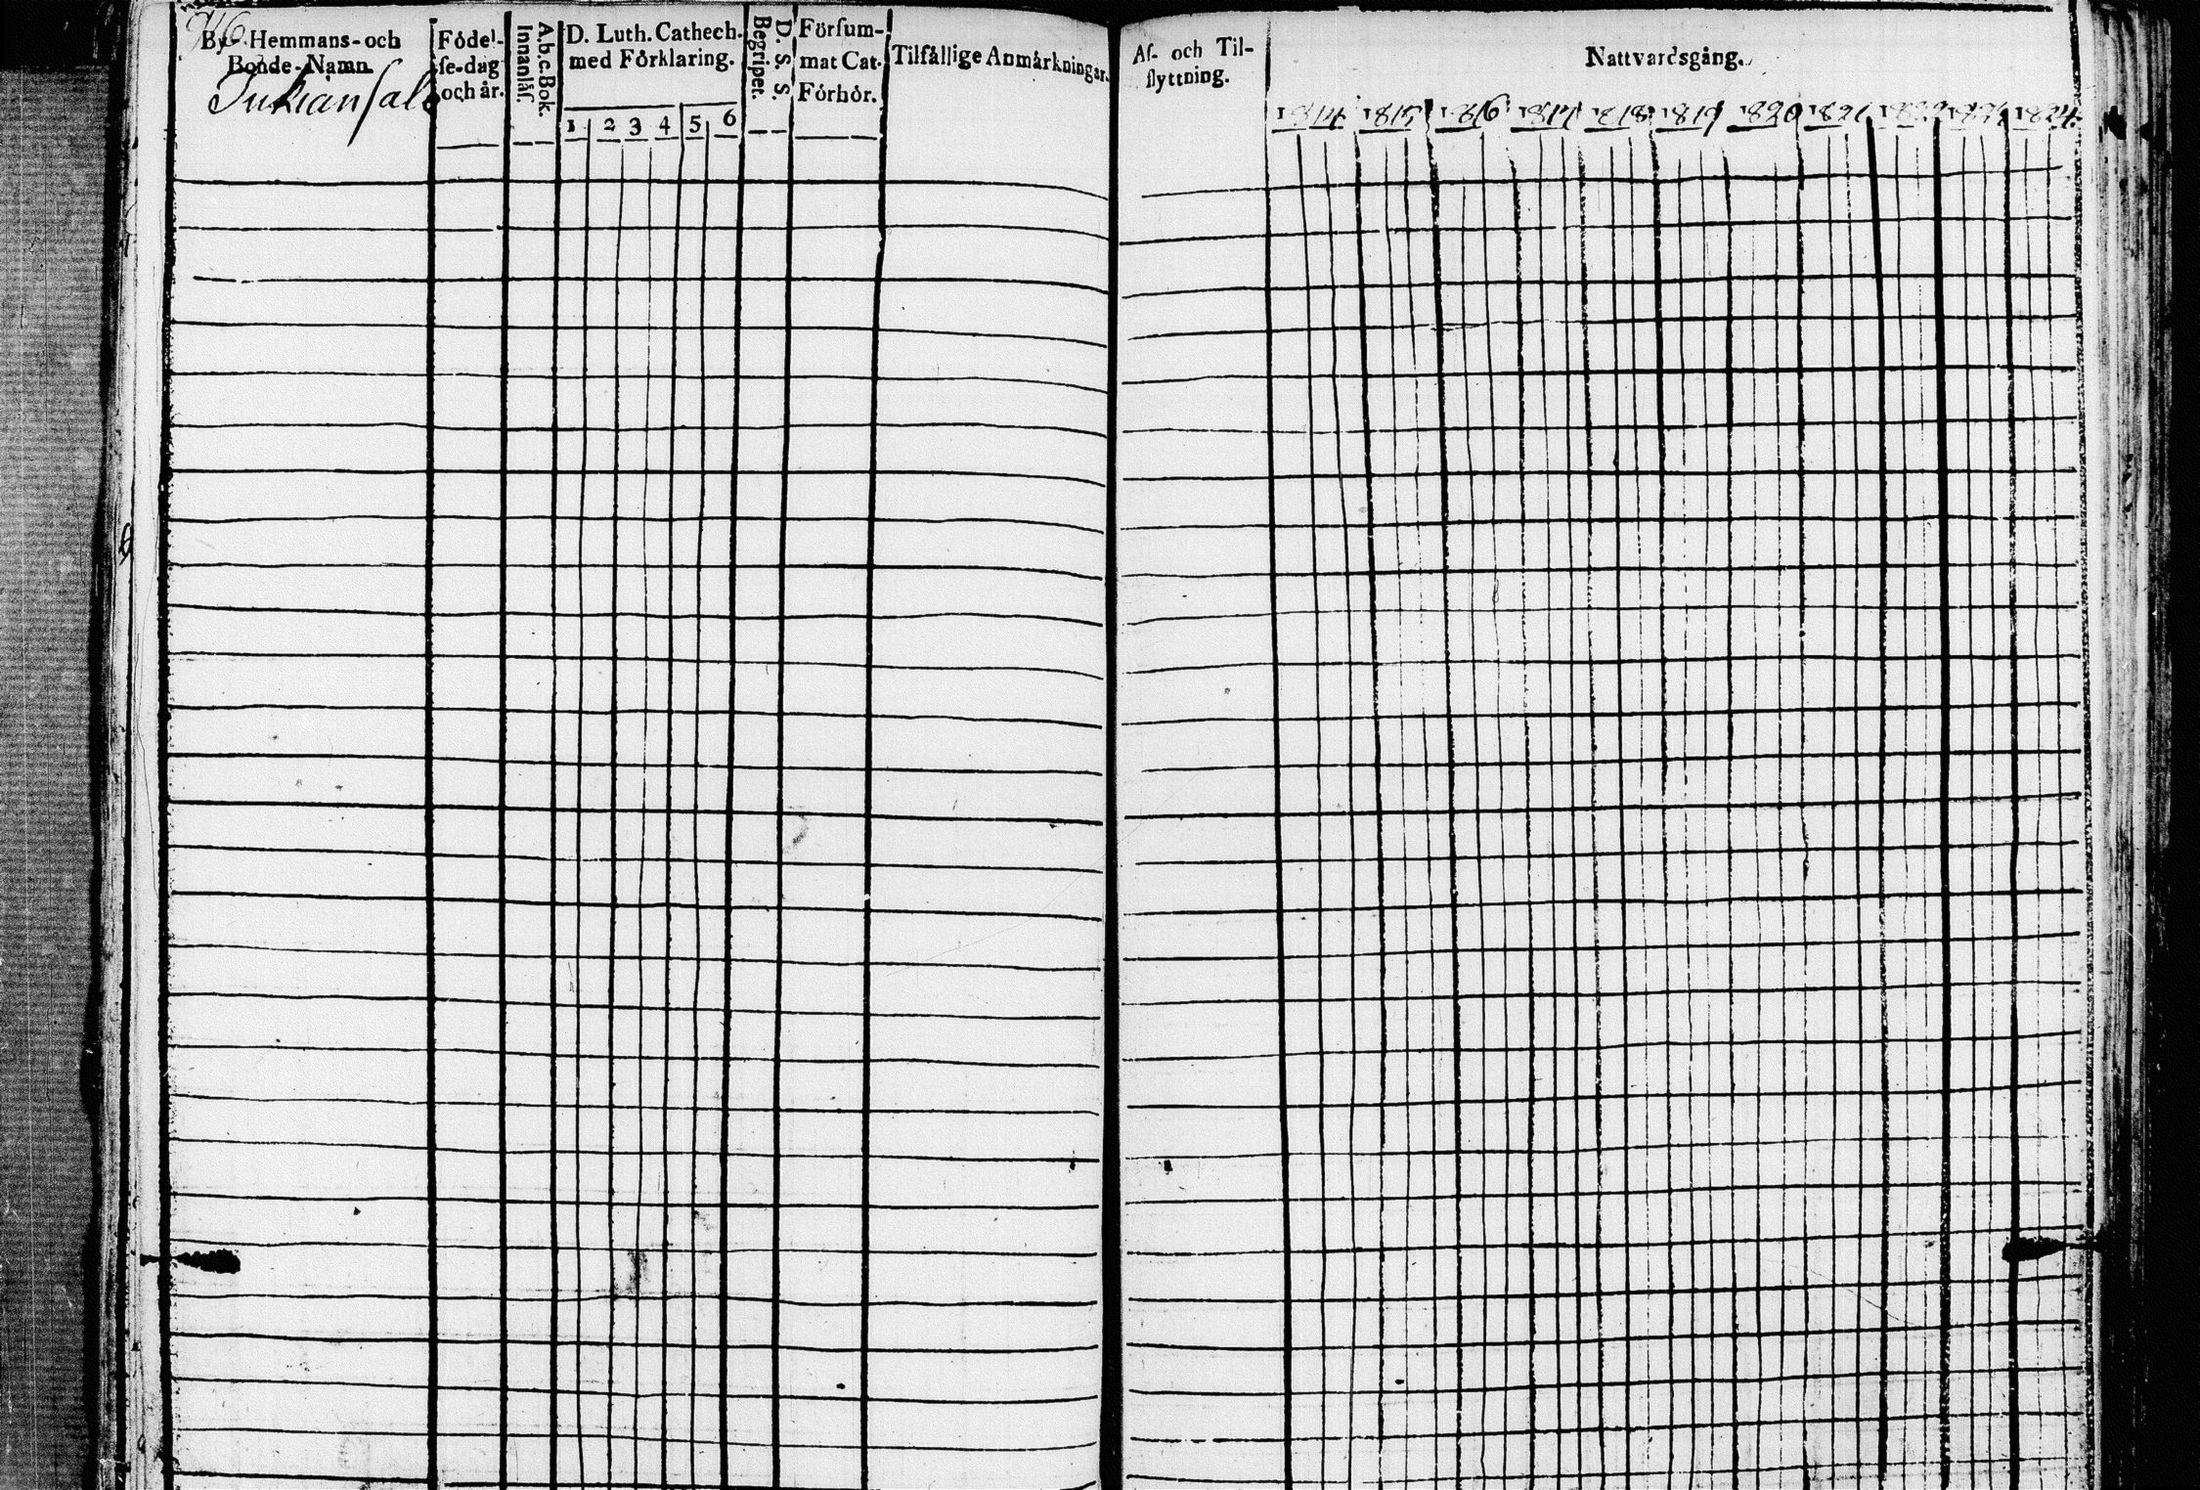 By- Hemmans- och
Bonde-Namn
Jukiansalo
Födel-
se-dag
och år.
A.b.c.Bok.
Innanläs.
D. Luth. Cathech.
med Förklaring.
1 2 3 4 5 6
D. S. S.
Begriper.
Försum-
mat Cat.
Förhör.
Tilfällige Anmärkningar.
Af- och Til-
flyttning.
Nattvardsgång.
1814 1815 1816 1817 1818 1819 1820 1821 1822 1823 1824